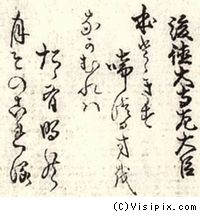 後徳大寺左大臣
ほとゝきす
啼つる方を
なかむれは
たゝ有明の
月そのこれる
(C)Visipix.com